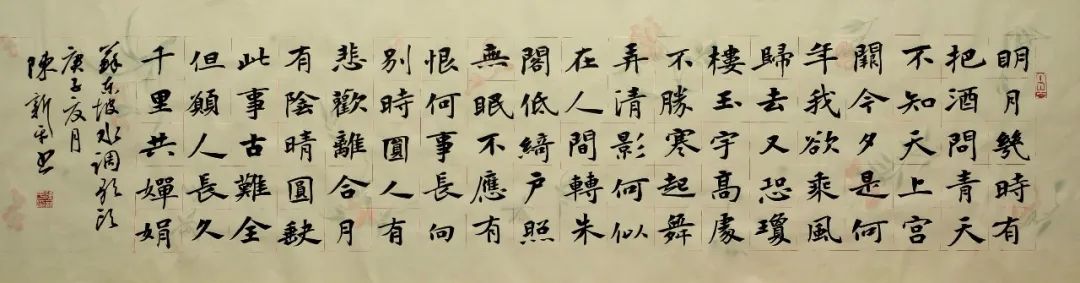 明月幾時有
把酒問青天
不知天上宮
闕今夕是何
年我欲乘風
歸去又恐瓊
樓玉宇高處
不勝寒起舞
弄清影何似
在人間轉朱
閣低綺户照
無眠不應有
恨何事長向
别時圓人有
悲歡離合月
有陰晴圓缺
此事古難全
但願人長久
千里共嬋娟
蘇东坡水调歌頭
庚子夏月
陳新平书